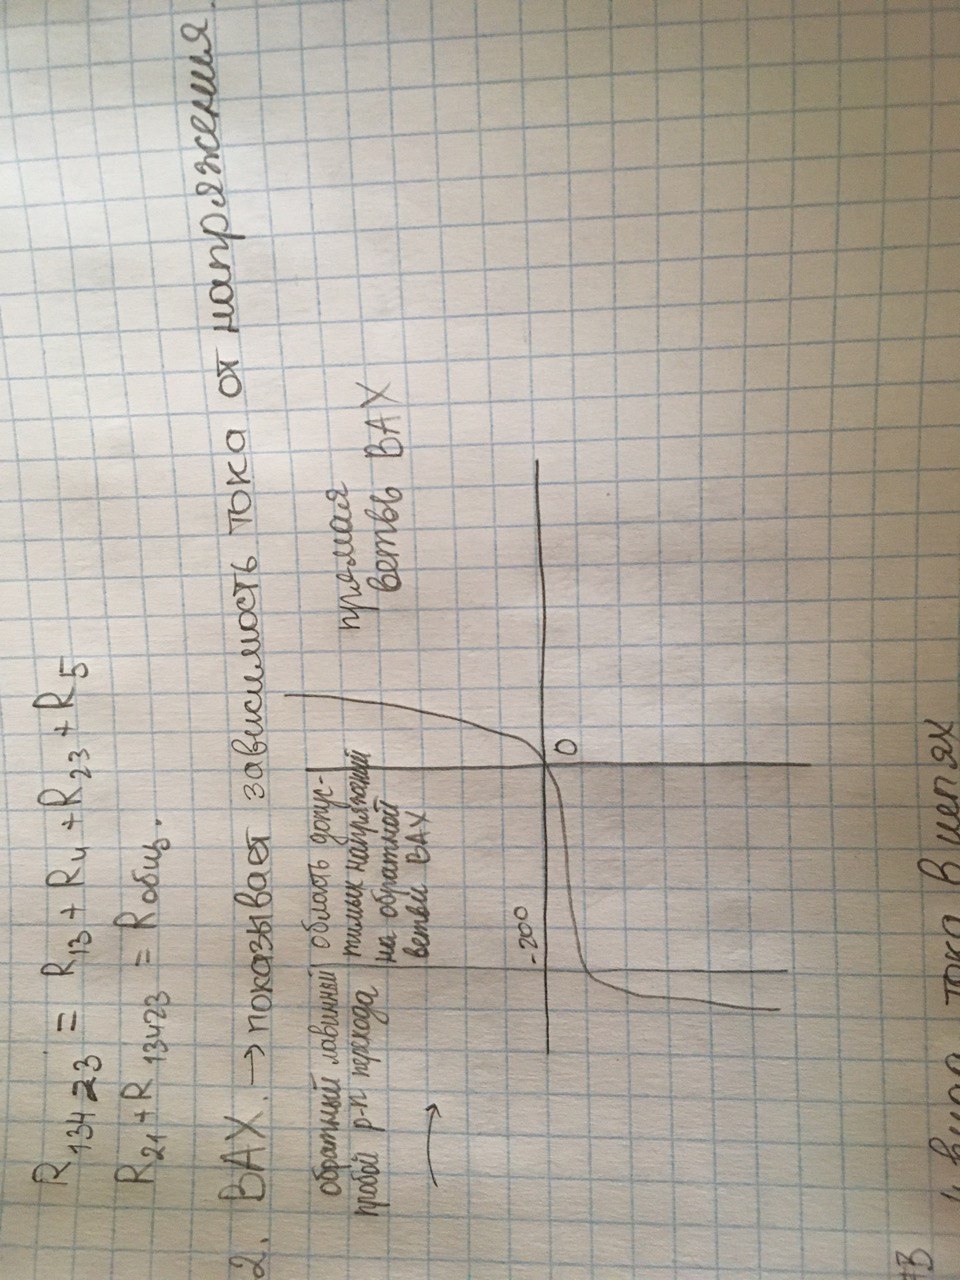 R13423 = R13 + R4 + R23 + R5
R21 + R13423 = Rобщ.
2. ВАХ. → показывает зависимость тока от напряжения.
обратный лавинный
пробой p-n перехода
область допус-
тимых напряжений
на обратной
ветви ВАХ
прямая
ветвь ВАХ
-200
0
тока в цепях